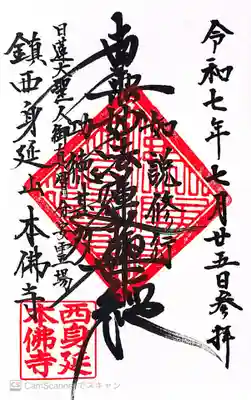 令和七年七月廿五日参拝
如説修行
南無妙法蓮華経
功徳甚多
日蓮大聖人御真骨奉安霊場
鎮西身延山 本佛寺
西身延
本佛寺
CS CamScannerでスキャン